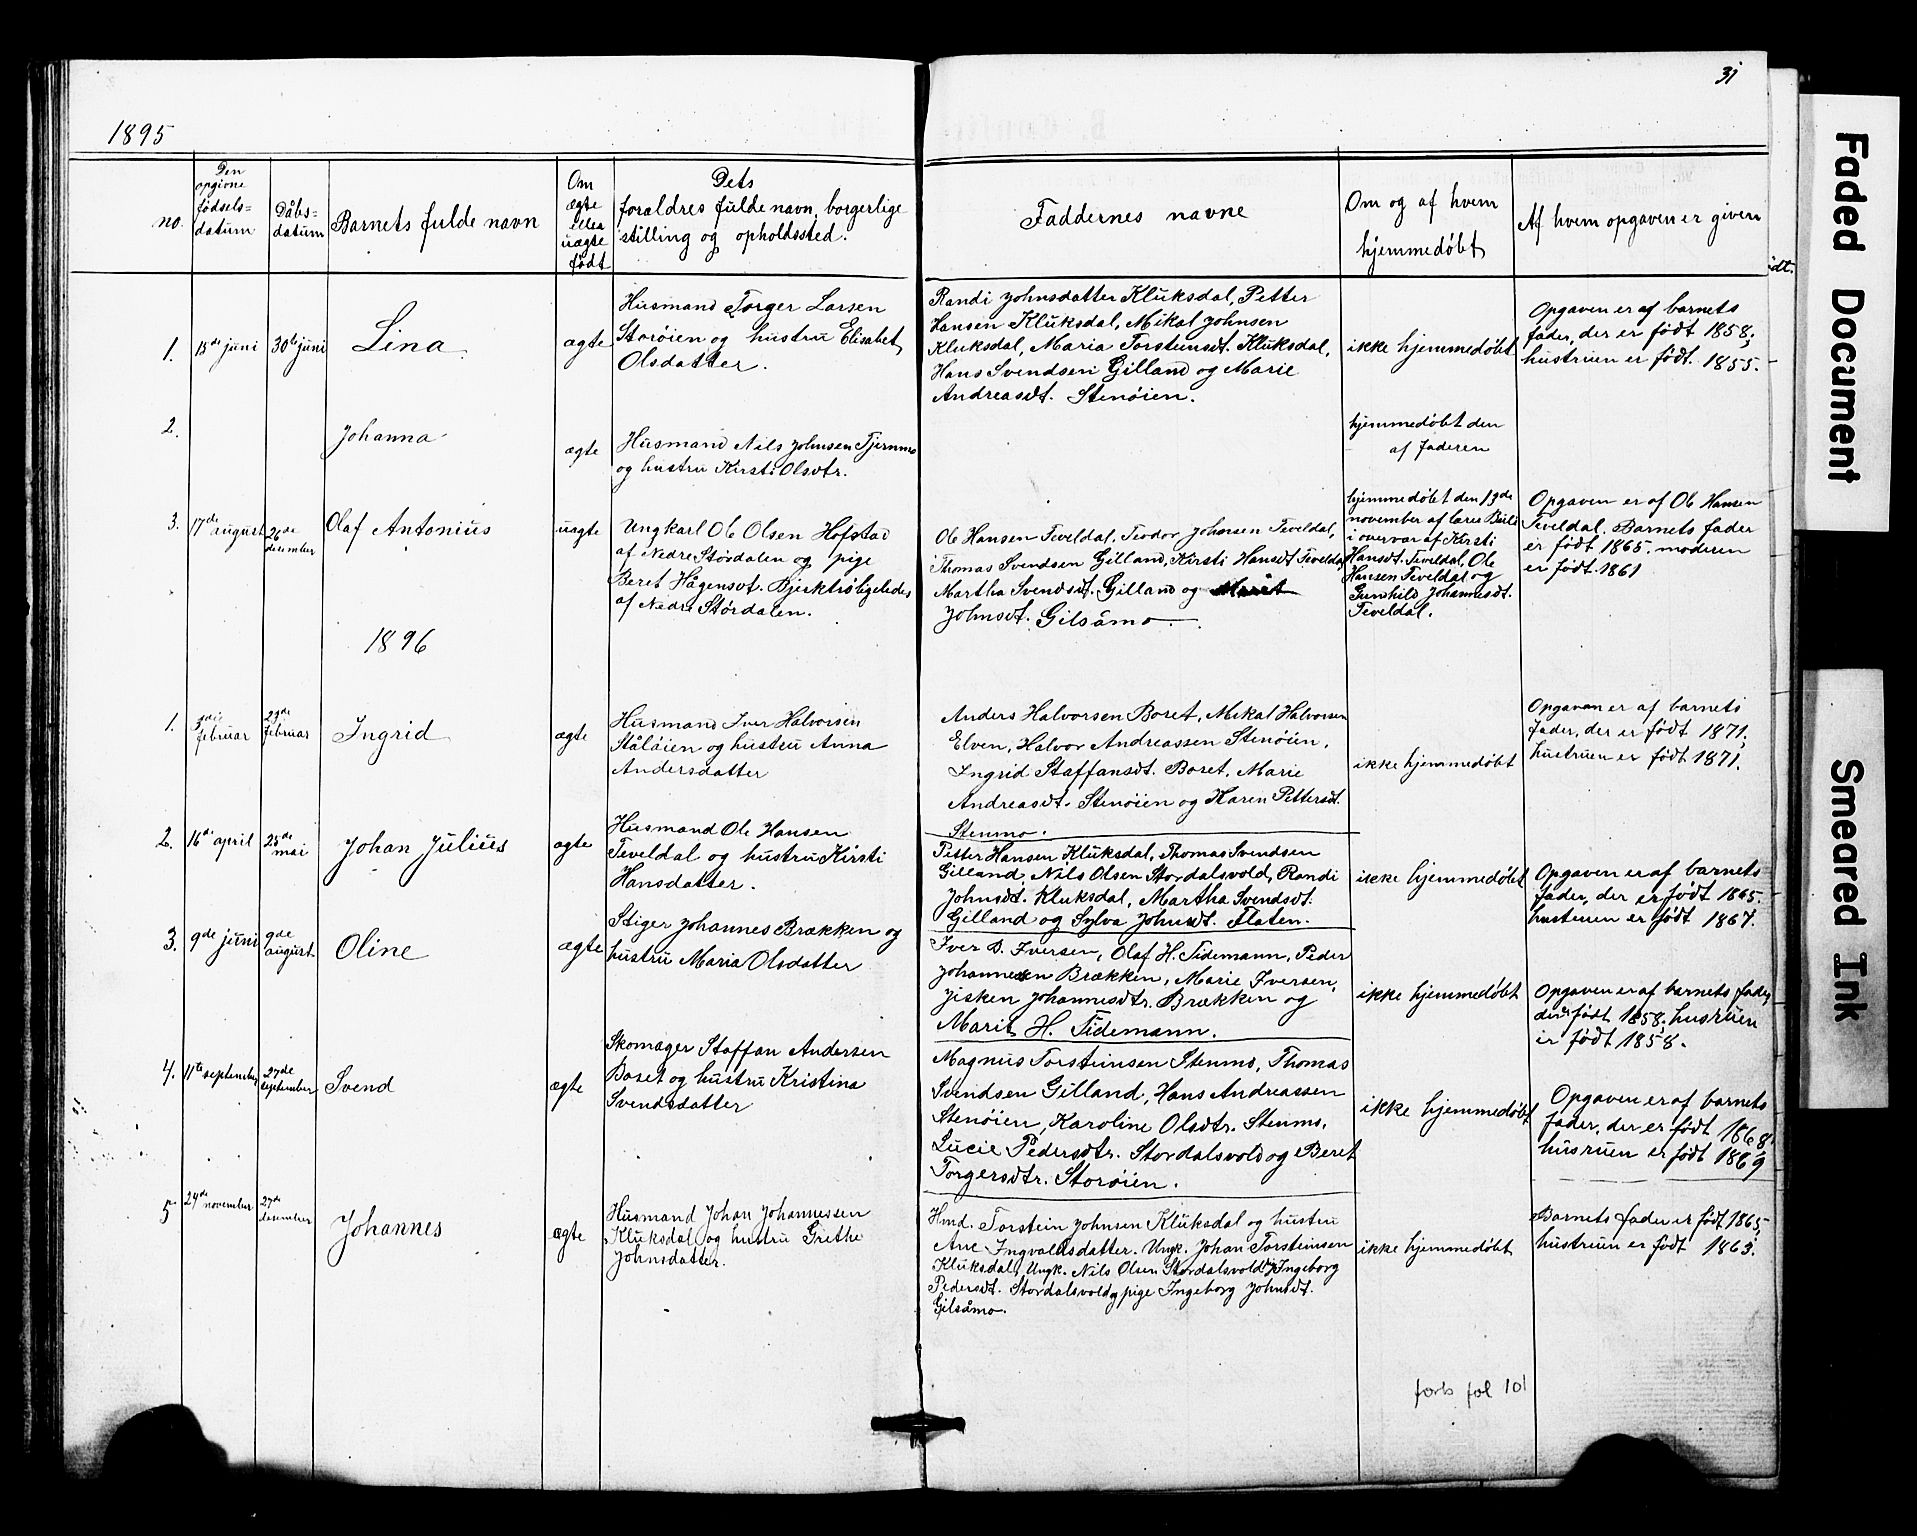 31
1895
no.
Den
opgivne
fødsels=
datum
Dåbs=
datum
Barnets fulde navn
Om
ægte
eller
uægte
født
Dets
forældres fulde navn, borgerlige
stilling og opholdssted.
Faddernes navne
Om og af hvem
hjemmedøbt
Af hvem opgaven er given
1.
15de juni
30te juni
Lina
ægte
Husmand Torger Larsen
Storøien og hustru Elisabet
Olsdatter.
Randi Johnsdatter Kluksdal, Petter
Hansen Kluksdal, Mikal Johnsen
Kluksdal, Maria Torsteinsdt. Kluksdal,
Hans Svendsen Gilland og Marie
Andreasdt. Stenøien.
ikke hjemmedøbt
Opgaven er af barnets
fader, der er født 1858;
hustruen er født 1855.
2.
Johanna
ægte
Husmand Nils Johnsen Tjernmo
og hustru Kirsti Olsdtr.
hjemmedøbt den
af faderen
3.
17de august
26de
december
Olaf Antonius
uægte
Ungkarl Ole Olsen Hofstad
af Nedre Størdalen og pige
Beret Hågensdt. ligeledes
af Nedre Størdalen.
Ole Hansen Teveldal, Teodor Johnsen Teveldal,
Thomas Svendsen Gilland, Kirsti Hansdt Teveldal
Martha Svendsdt. Gilland og Marit
Johnsdt. Gilsåmo.
hjemmedøbt den 19de
november af
i overvær af Kirsti
Hansdt. Teveldal, Ole
Hansen Teveldal og
Gunhild Johannesdt.
Teveldal.
Opgaven er af Ole Hansen
Teveldal. Barnets fader
er født 1865. moderen
er født 1861
1896
1.
3die
februar
23de
februar
Ingrid
ægte
Husmand Iver Halvorsen
Ståløien og hustru Anna
Andersdatter
Anders Halvorsen Boret, Mikal Halvorsen
Elven, Halvor Andreassen Stenøien,
Ingrid Staffansdt. Boret, Marie
Andreasdt. Stenøien og Karen Pettersdt.
Stenmo.
ikke hjemmedøbt
Opgaven er af barnets
fader, der er født 1871;
hustruen er født 1871.
2.
16de april
25de
mai
Johan Julius
ægte
Husmand Ole Hansen
Teveldal og hustru Kirsti
Hansdatter.
Petter Hansen Kluksdal, Thomas Svendsen
Gilland Nils Olsen Stordalsvold, Randi
Johnsdt. Kluksdal, Martha Svendsdt.
Gilland og Sylva Johnsdt. Flaten.
ikke hjemmedøbt
Opgaven er af barnets
fader, der er født 1865.
hustruen er født 1867.
3.
9de juni
9de
august
Oline
ægte
Stiger Johannes Brækken og
hustru Maria Olsdatter
Iver B. Iversen, Olaf H. Tidemann, Peder
Johannesen Brækken, Marie Iversen,
Johannesdtr. Brækken og
Marit H. Tidemann.
ikke hjemmedøbt
Opgaven er af barnets fader,
der født 1858; husruen
er født 1858.
4.
11te september
27de
september
Svend
ægte
Skomager Staffan Andersen
Boset og hustru Kristina
Svendsdatter
Magnus Torsteinsen Stenmo, Thomas
Svendsen Gilland, Hans Andreassen
Stenøien, Karoline Olsdtr. Stenmo,
Lucie Pedersdtr. Stordalsvold og Beret
Torgersdtr. Storøien.
ikke hjemmedøbt
Opgaven er af barnets
fader, der er født 1868;
husruen er født 1869
5
24de november
27de
desember
Johannes
ægte
Husmand Johan Johannessen
Kluksdal og hustru Grethe
Johnsdatter.
Hmd. Torstein Johnsen Kluksdal og hustru
Ane Ingvaldsdatter. Ungk. Johan Torsteinsen
Kluksdal, Ungk. Nils Olsen Stordalsvold, Ingeborg
Pedersdt. Stordalsvold og pige Ingeborg Johnsdt.
Gilsåmo.
ikke hjemmedøbt
Barnets fader er født 1865,
hustruen er født 1863.
forts fol 101
Faded Document
Smeared Ink